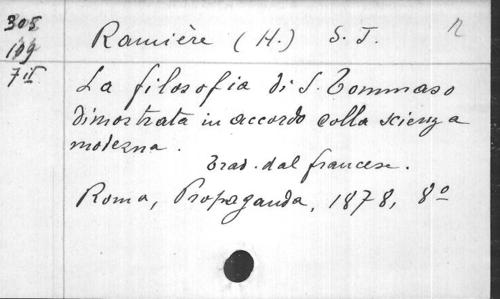 308
109
7 II
Ramière (H.) S. J.
La filosofia di S. Tommaso
dimostrata in accordo colla scienza
moderna.
Trad. dal francese.
Roma, Propaganda, 1878, 8º